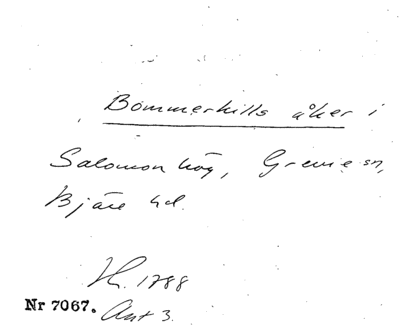 Bommerhills åker i
Salomonhög, Grevie sn,
Bjäre hd.
H. 1788
Nr 7067. Ant 3.